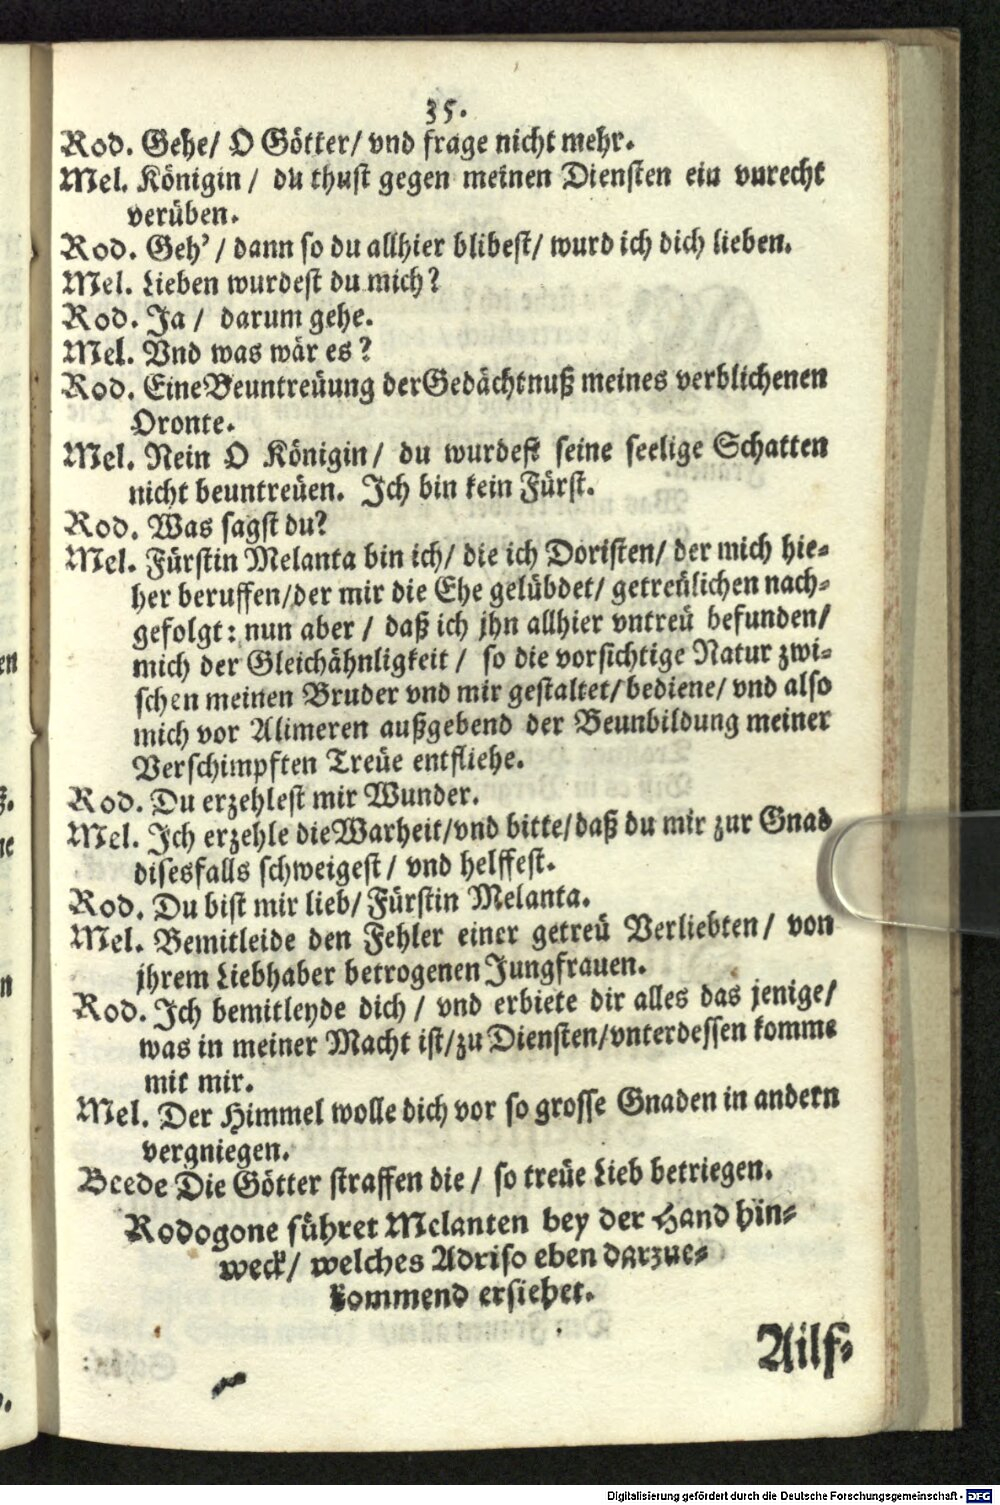 35.
Rod. Gehe/ O Götter/ vnd frage nicht mehr.
Mel. Königin / du thust gegen meinen Diensten ein vnrecht
verüben.
Rod. Geh' / dann so du allhier blibest/ wurd ich dich lieben.
Mel. Lieben wurdest du mich?
Rod. Ja / darum gehe.
Mel. Vnd was wär es?
Rod. Eine Beuntreüung der Gedächtnuß meines verblichenen
Oronte.
Mel. Nein O Königin/ du wurdest seine seelige Schatten
nicht beuntreüen. Ich bin kein Fürst.
Rod. Was sagst du?
Mel. Fürstin Melanta bin ich/ die ich Doristen/ der mich hie-
her beruffen/der mir die Ehe gelübdet/ getreülichen nach-
gefolgt: nun aber / daß ich jhn allhier vntreü befunden/
mich der Gleichähnligkeit / so die vorsichtige Natur zwi-
schen meinen Bruder vnd mir gestaltet/ bediene/ vnd also
mich vor Alimeren außgebend der Beunbildung meiner
Verschimpften Treüe entfliehe.
Rod. Du erzehlest mir Wunder.
Mel. Ich erzehle die Warheit/vnd bitte/daß du mir zur Gnad
disesfalls schweigest / vnd helffest.
Rod. Du bist mir lieb/ Fürstin Melanta.
Mel. Bemitleide den Fehler einer getreü Verliebten / von
jhrem Liebhaber betrogenen Jungfrauen.
Rod. Ich bemitleyde dich / vnd erbiete dir alles das jenige/
was in meiner Macht ist/zu Diensten/vnterdessen komme
mit mir.
Mel. Der Himmel wolle dich vor so grosse Gnaden in andern
vergniegen.
Beede Die Götter straffen die / so treüe Lieb betriegen.
Rodogone führet Melanten bey der Hand hin-
weck/ welches Adriso eben darzue-
kommend ersiehet.
Ailf-
Digitalisierung gefördert durch die Deutsche Forschungsgemeinschaft - DFG